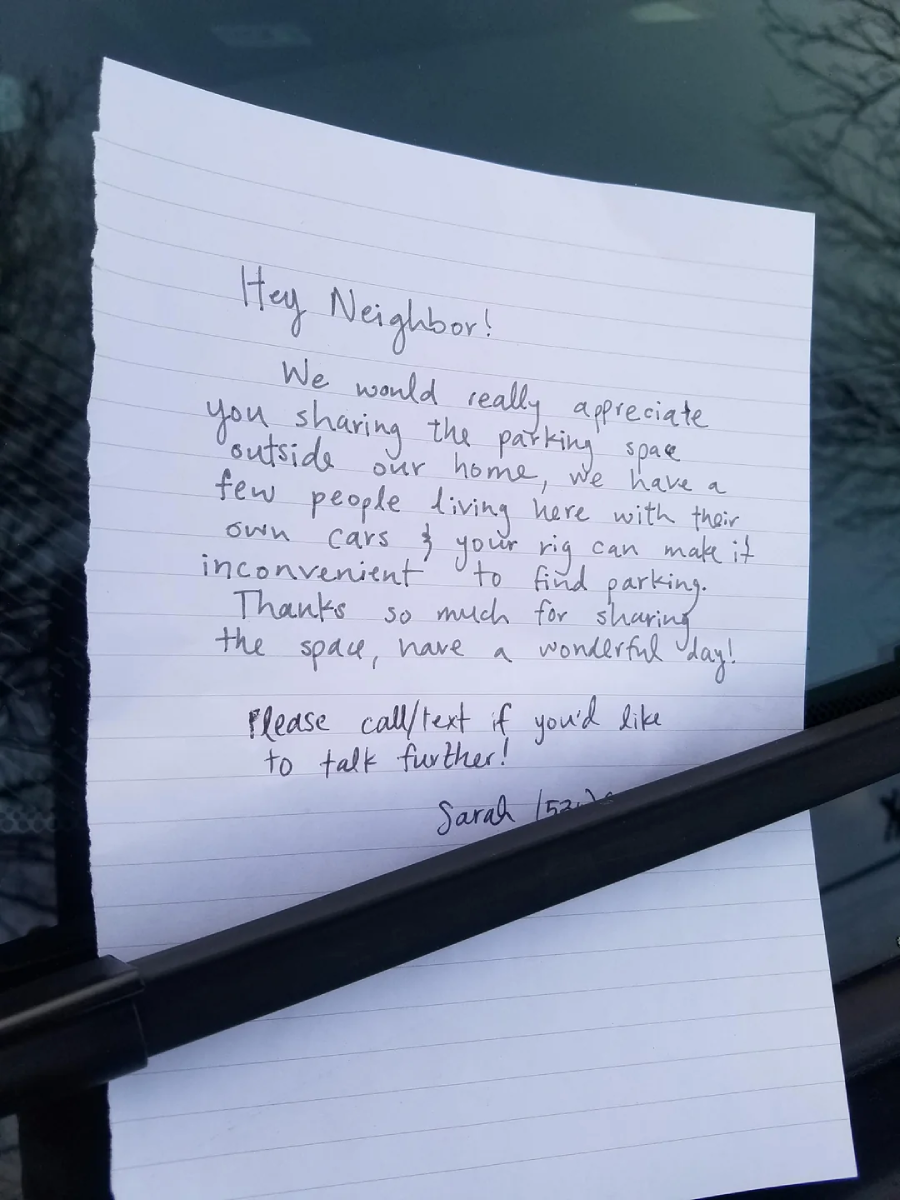 Hey Neighbor!
We would really appreciate
you sharing the parking space
outside our home, we have a
few people living here with their
own cars & your rig can make it
inconvenient to find parking.
Thanks so much for sharing
the space, have a wonderful day!
Please call/text if you'd like
to talk further!
Sarah